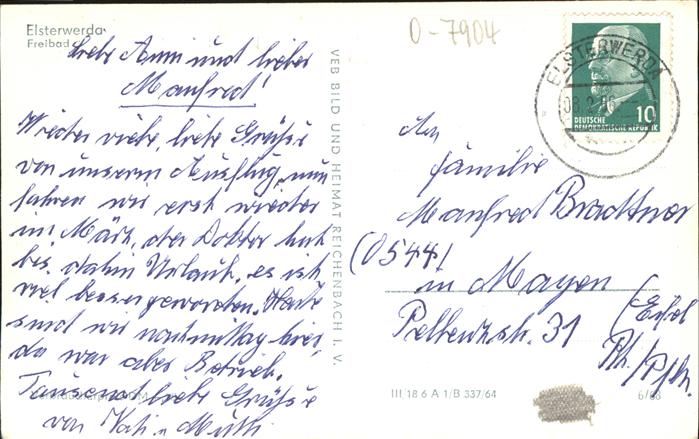 Elsterwerda
Freibad
0-7904
Liebe Anni und lieber
Manfred!
Wieder viele liebe Grüsse
von unserem Ausflug, nun
fahren wir erst wieder
im März, der Doktor hat
bis dahin Urlaub, es ist
viel besser geworden. Heute
sind wir nachmittag hier,
da war aber Betrieb.
Tausend liebe Grüsse
von Vati u. Mutti
VEB BILD UND HEIMAT REICHENBACH I. V.
ELSTERWERDA
DEUTSCHE
DEMOKRATISCHE REPUBLIK
10
An
Familie
Manfred Bradtner
(0544)
in Mayen
(Eifel
Pellenzstr. 31
Rh./Pflz.
III/18 6 A 1/B 337/64
6/68